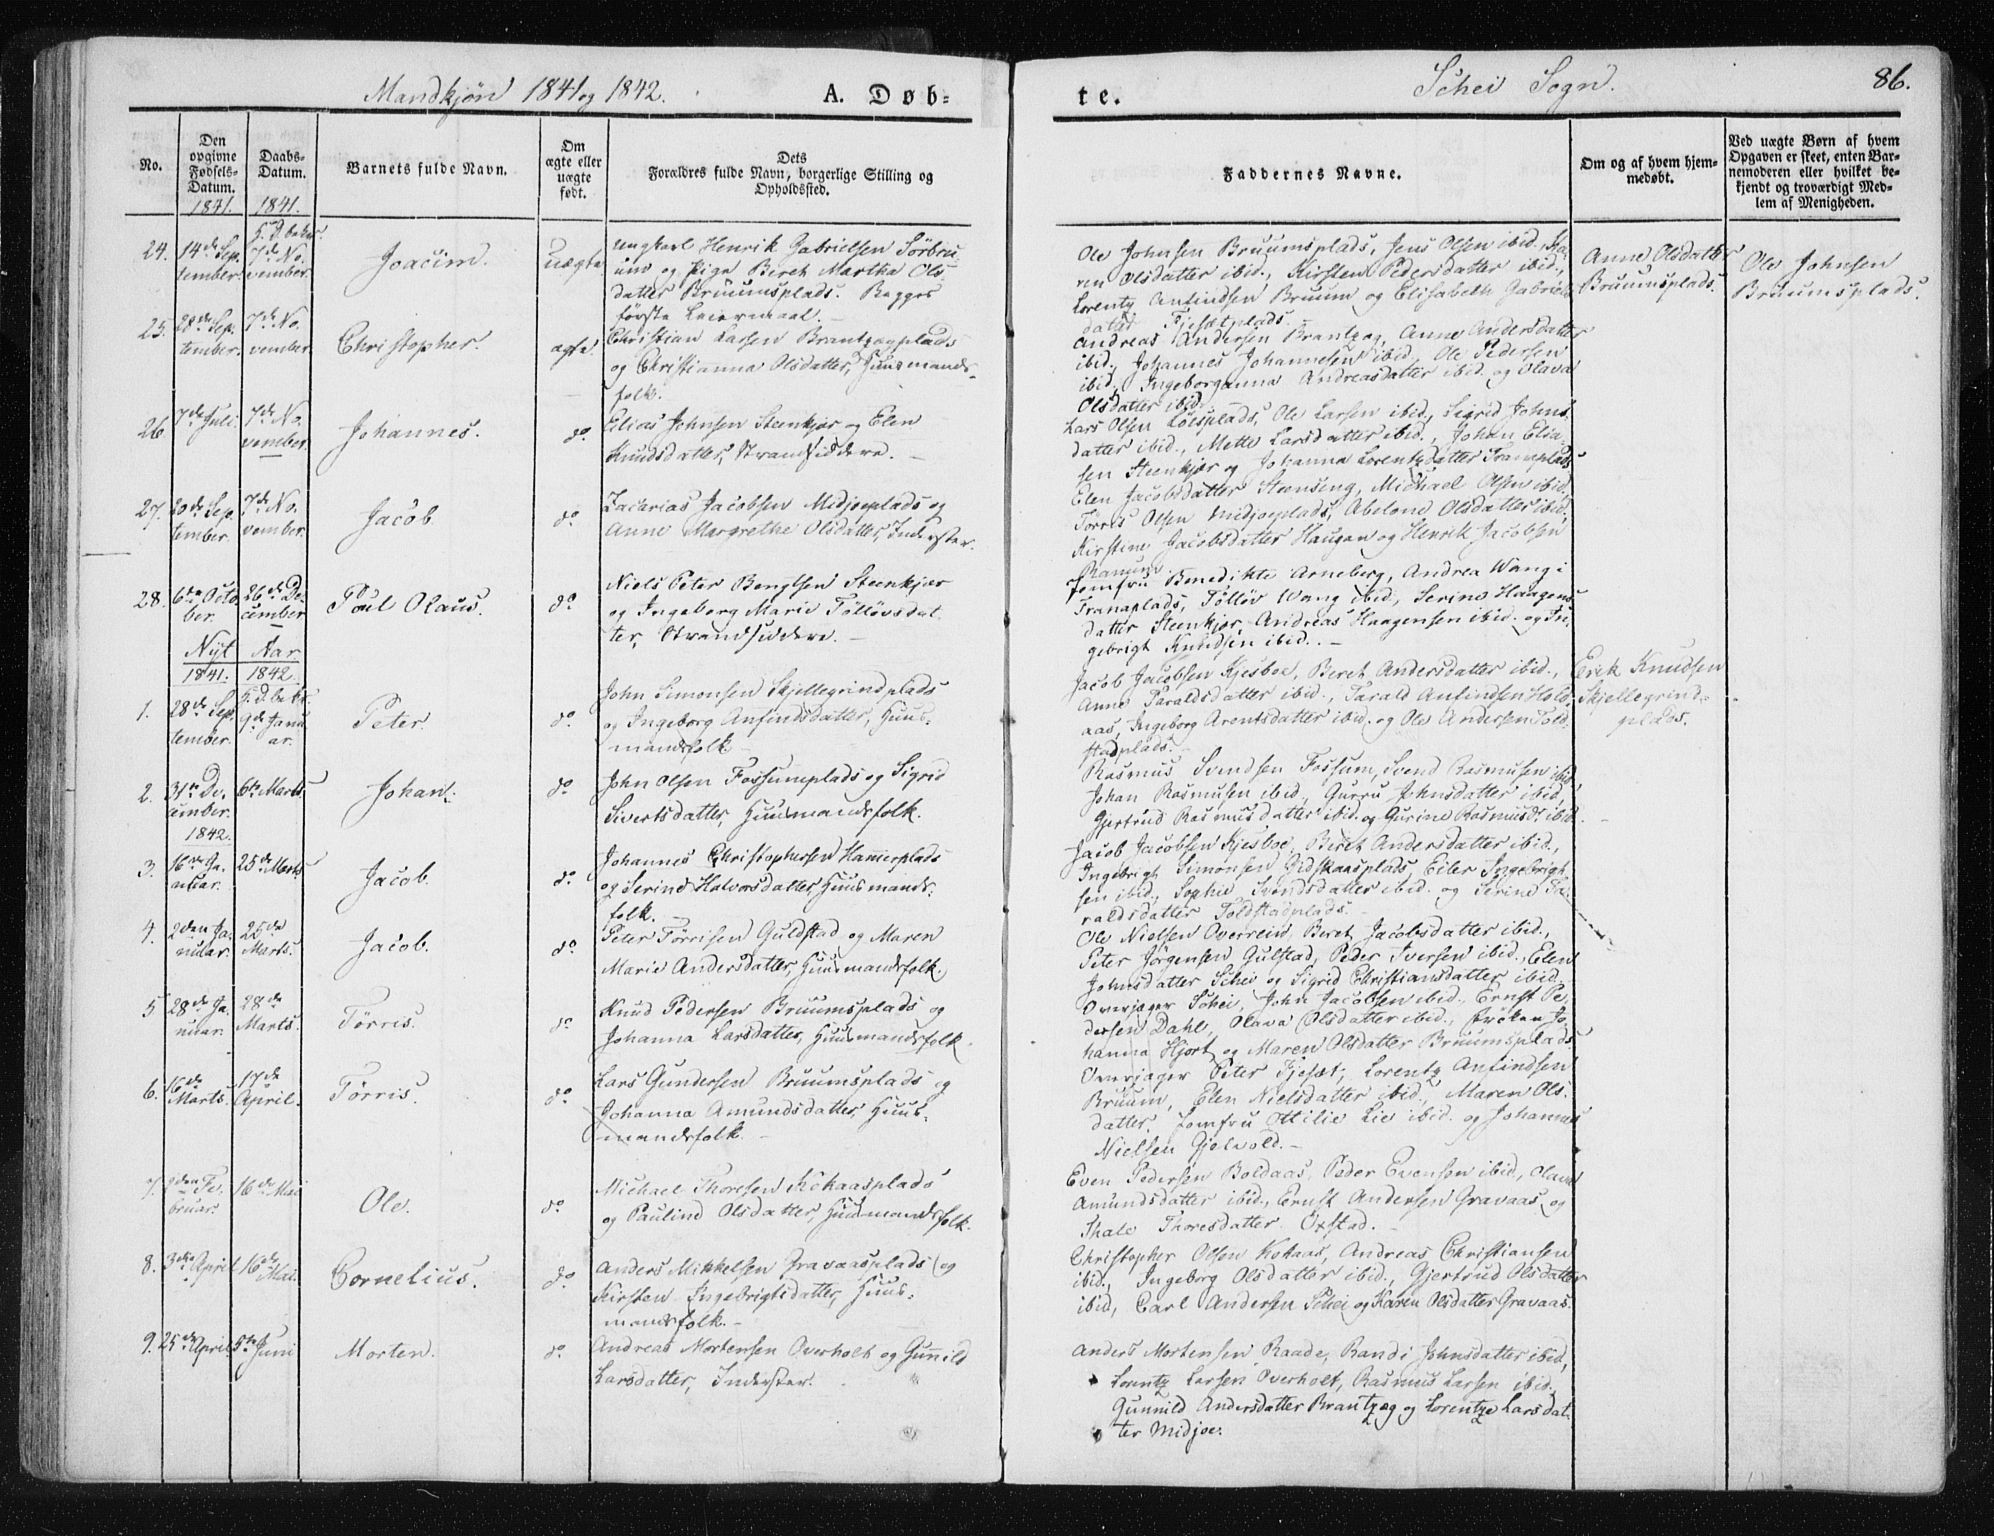 Mandkjøn 1841 og 1842.
A. Døb=
te.
Schei Sogn.
86.
No.
Den opgivne Fødsels-Datum.
Daabs-Datum.
Barnets fulde Navn.
Om ægte eller uægte født.
Dets Forældres fulde Navn, borgerlige Stilling og Opholdssted.
Faddernes Navne.
Om og af hvem hjem-
medøbt.
Ved uægte Børn af hvem
Opgaven er skeet, enten Bar-
nemoderen eller hvilket be-
kjendt og troværdigt Med-
lem af Menigheden.
1841. 1841.
24. 14de Sep
tember.
7de No.
vember.
Joacim.
uægte
Ungkarl Henrik Gabrielsen Sörbru
um og Pige Beret Martha Ols
datter Bruumsplads. Begges
første Leiermaal.
Ole Johnsen Bruumsplads, Jens Olsen ibid., Ka
ren Olsdatter ibid., Kirsten Pedersdatter ibid.,
Lorentz Anfindsen Bruum og Elisabeth Gabriels
datter Fjesetplads.
Anne Olsdatter
Bruumsplads.
Ole Johnsen
Bruumsplads.
25. 28de Sep.
tember.
7de No.
vember.
Christopher
ægte.
Christian Larsen Brantzægplads
og Christianna Olsdatter, Huusmands-
folk.
Andreas Andersen Brantzæg, Anne Andersdatter
ibid., Johannes Johannesen ibid., Ole Pedersen
ibid., Ingeborganna Andreasdatter ibid. og Olava
Olsdatter ibid.
26. 7de Juli.
7de No.
vember.
Johannes.
do
Elias Johnsen Steenkjær og Elen
Knudsdatter, Strandsiddere.
Lars Olsen Løesplads, Ole Larsen ibid., Sigrid Johns
datter ibid., Mette Larsdatter ibid., Johan Elia-
sen Steenkjær og Johanna Lorentzdatter Tranaplads
27. 20de Sep.
tember.
7de No.
vember.
Jacob.
do
Zacharias Jacobsen Midjoeplads og
Anne Margrethe Olsdatter, Inderster.
Elen Jacobsdatter Steenseng, Michael Olsen ibid.
Tørris Olsen Midjoeplads, Abelone Olsdatter ibid.
Kirstine Jacobsdatter Haugan og Henrik Jacobsen
Ranum
28. 6te Octo
ber.
26de De-
cember
Poul Olaus.
do
Niels Peter Bengtsen Steenkjær
og Ingeborg Marie Tollövsdat-
ter, Strandsiddere.
Jomfru Benedikte Arneberg, Andrea Wang i
Tranaplads, Töllöv Wang ibid., Serine Haagens
datter Steenkjær, Andreas Haagensen ibid. og In
gebrigt Knudsen ibid.
Nyt Aar
1841. 1842.
1. 28de Sep.
tember.
9de Janu
ar.
Peter.
do
John Simonsen Skjellegrindplads
og Ingeborg Anfindsdatter, Huus-
mandsfolk
Jacob Jacobsen Kjesboe, Beret Andersdatter ibid.,
Anne Taraldsdatter ibid., Tarald Anfindsen Hald-
aas, Ingeborg Arentsdatter ibid. og Ole Andersen Told-
stadplads.
Erik Knudsen
Skjellegrind-
plads.
2. 31te De-
cember.
1842.
6te Marts.
Johan.
do
John Olsen Fossumplads og Sigrid
Sivertsdatter, Huusmandsfolk.
Rasmus Svendsen Fossum, Svend Rasmusen ibid.
Johan Rasmusen ibid., Gurru Johnsdatter ibid.,
Gjertrud Rasmusdatter ibid. og Gurine Rasmusdr ibid.
3. 16de Ja-
nuar.
25de Marts
Jacob.
do
Johannes Christophersen Hammerplads
og Serine Halvorsdatter, Huusmands-
folk.
Jacob Jacobsen Kjesboe, Beret Andersdatter ibid.,
Ingebrigt Simonsen Gidskaasplads, Eiler Ingebrigt
sen ibid., Sophie Svendsdatter ibid. og Serine Ta-
raldsdatter Toldstadplads.
4. 2den Ja-
nuar.
25de
Marts.
Jacob.
do
Peter Tørrisen Guldstad og Maren
Marie Andersdatter, Huusmandsfolk.
Ole Nielsen Overrein, Beret Jacobsdatter ibid.,
Peter Jörgensen Gulstad, Peder Iversen ibid., Elen
Johnsdatter Schei og Sigrid Christiansdatter ibid.
5 28de Ja-
nuar.
28de
Marts.
Tørris.
do
Knud Pedersen Bruumsplads og
Johanna Larsdatter, Huusmandsfolk.
Overjæger Schei, John Jacobsen ibid., Ernst Pe-
dersen Dahl, Olava Olsdatter ibid., Frøken Jo-
hanna Hjort og Maren Olsdatter Bruumsplads
6. 16de
Marts.
17de
April.
Tørris.
do
Lars Gundersen Bruumsplads og
Johanna Amundsdatter, Huus-
mandsfolk.
Overjæger Peter Fjeset, Lorentz Anfindsen
Bruum, Elen Nielsdatter ibid., Maren Ols-
datter, Jomfru Ottilie Lie ibid. og Johannes
Nielsen Gjelvold.
7. 2den Fe-
bruar.
16de Mai
Ole.
do
Michael Thoresen Kohaasplads
og Pauline Olsdatter, Huusmandsfolk.
Even Pedersen Boldaas, Peder Evensen ibid., Olava
Amundsdatter ibid., Ernst Andersen Gravaas og
Thale Thoresdatter Oxstad.
8. 3die April
16de
Mai.
Cornelius.
do
Anders Mikkelsen Gravaasplads og
Kirsten Ingebrigtsdatter, Huus-
mandsfolk.
Christopher Olsen Kohaas, Andreas Christiansen
ibid., Ingeborg Olsdatter ibid., Gjertrud Olsdatter
ibid., Carl Andersen Schei og Karen Olsdatter Gravaas.
9. 25de April
5te Juni
Morten.
do
Andreas Mortensen Overholt og Gunild
Larsdatter, Inderster.
Anders Mortensen Raade, Randi Johnsdatter ibid.,
Lorentz Larsen Overholt, Rasmus Larsen ibid.
Gunnild Andersdatter Brantzæg og Lorentze Larsdat-
ter Midjoe.